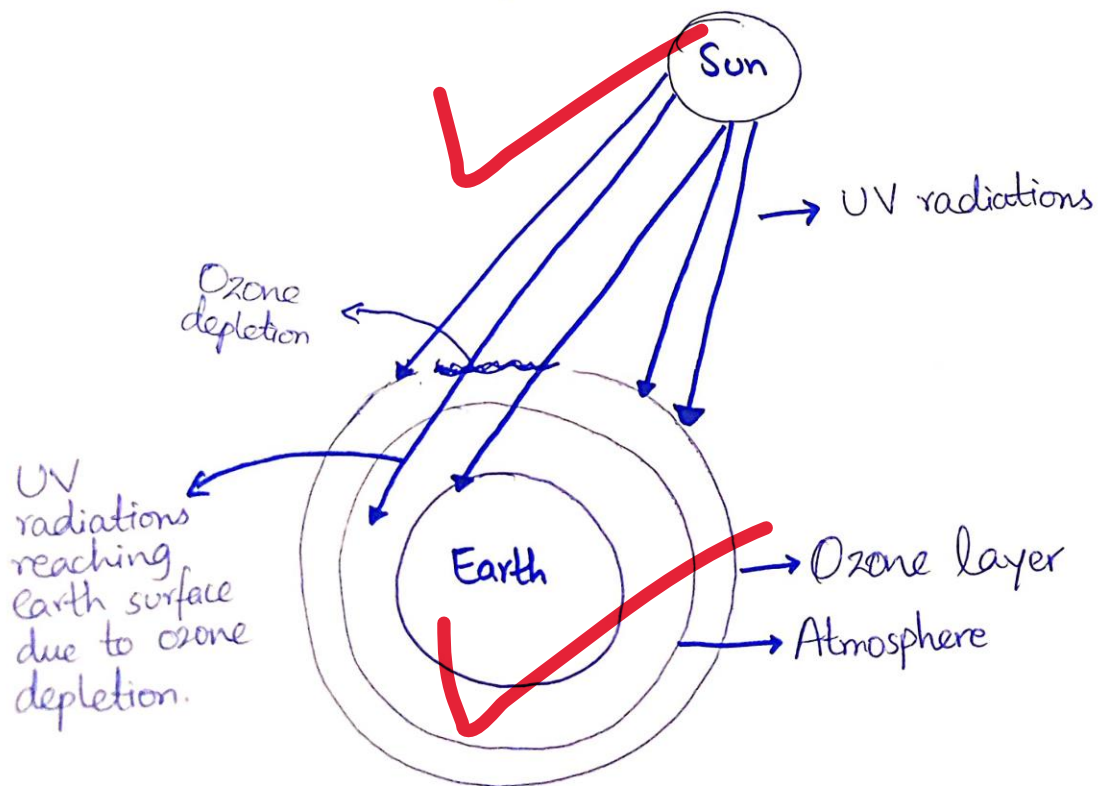 Sun
UV radiations
Ozone
depletion
UV
radiations
reaching
earth surface
due to ozone
depletion.
Earth
Ozone layer
Atmosphere